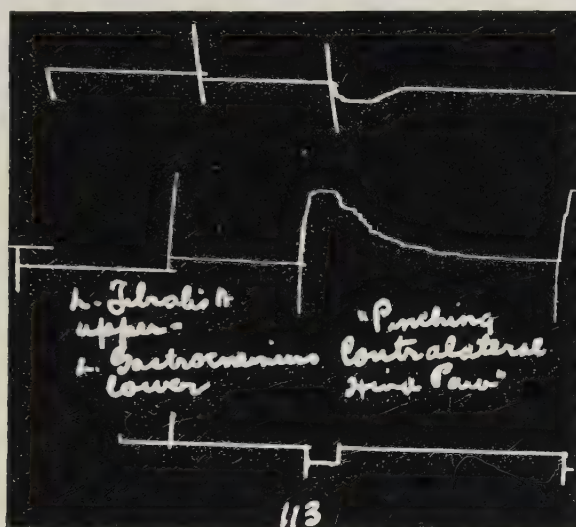 L. Tibialis A
upper-
L. Gastrocnemius
lower
"Pinching
Contralateral
Hind Paw"
113